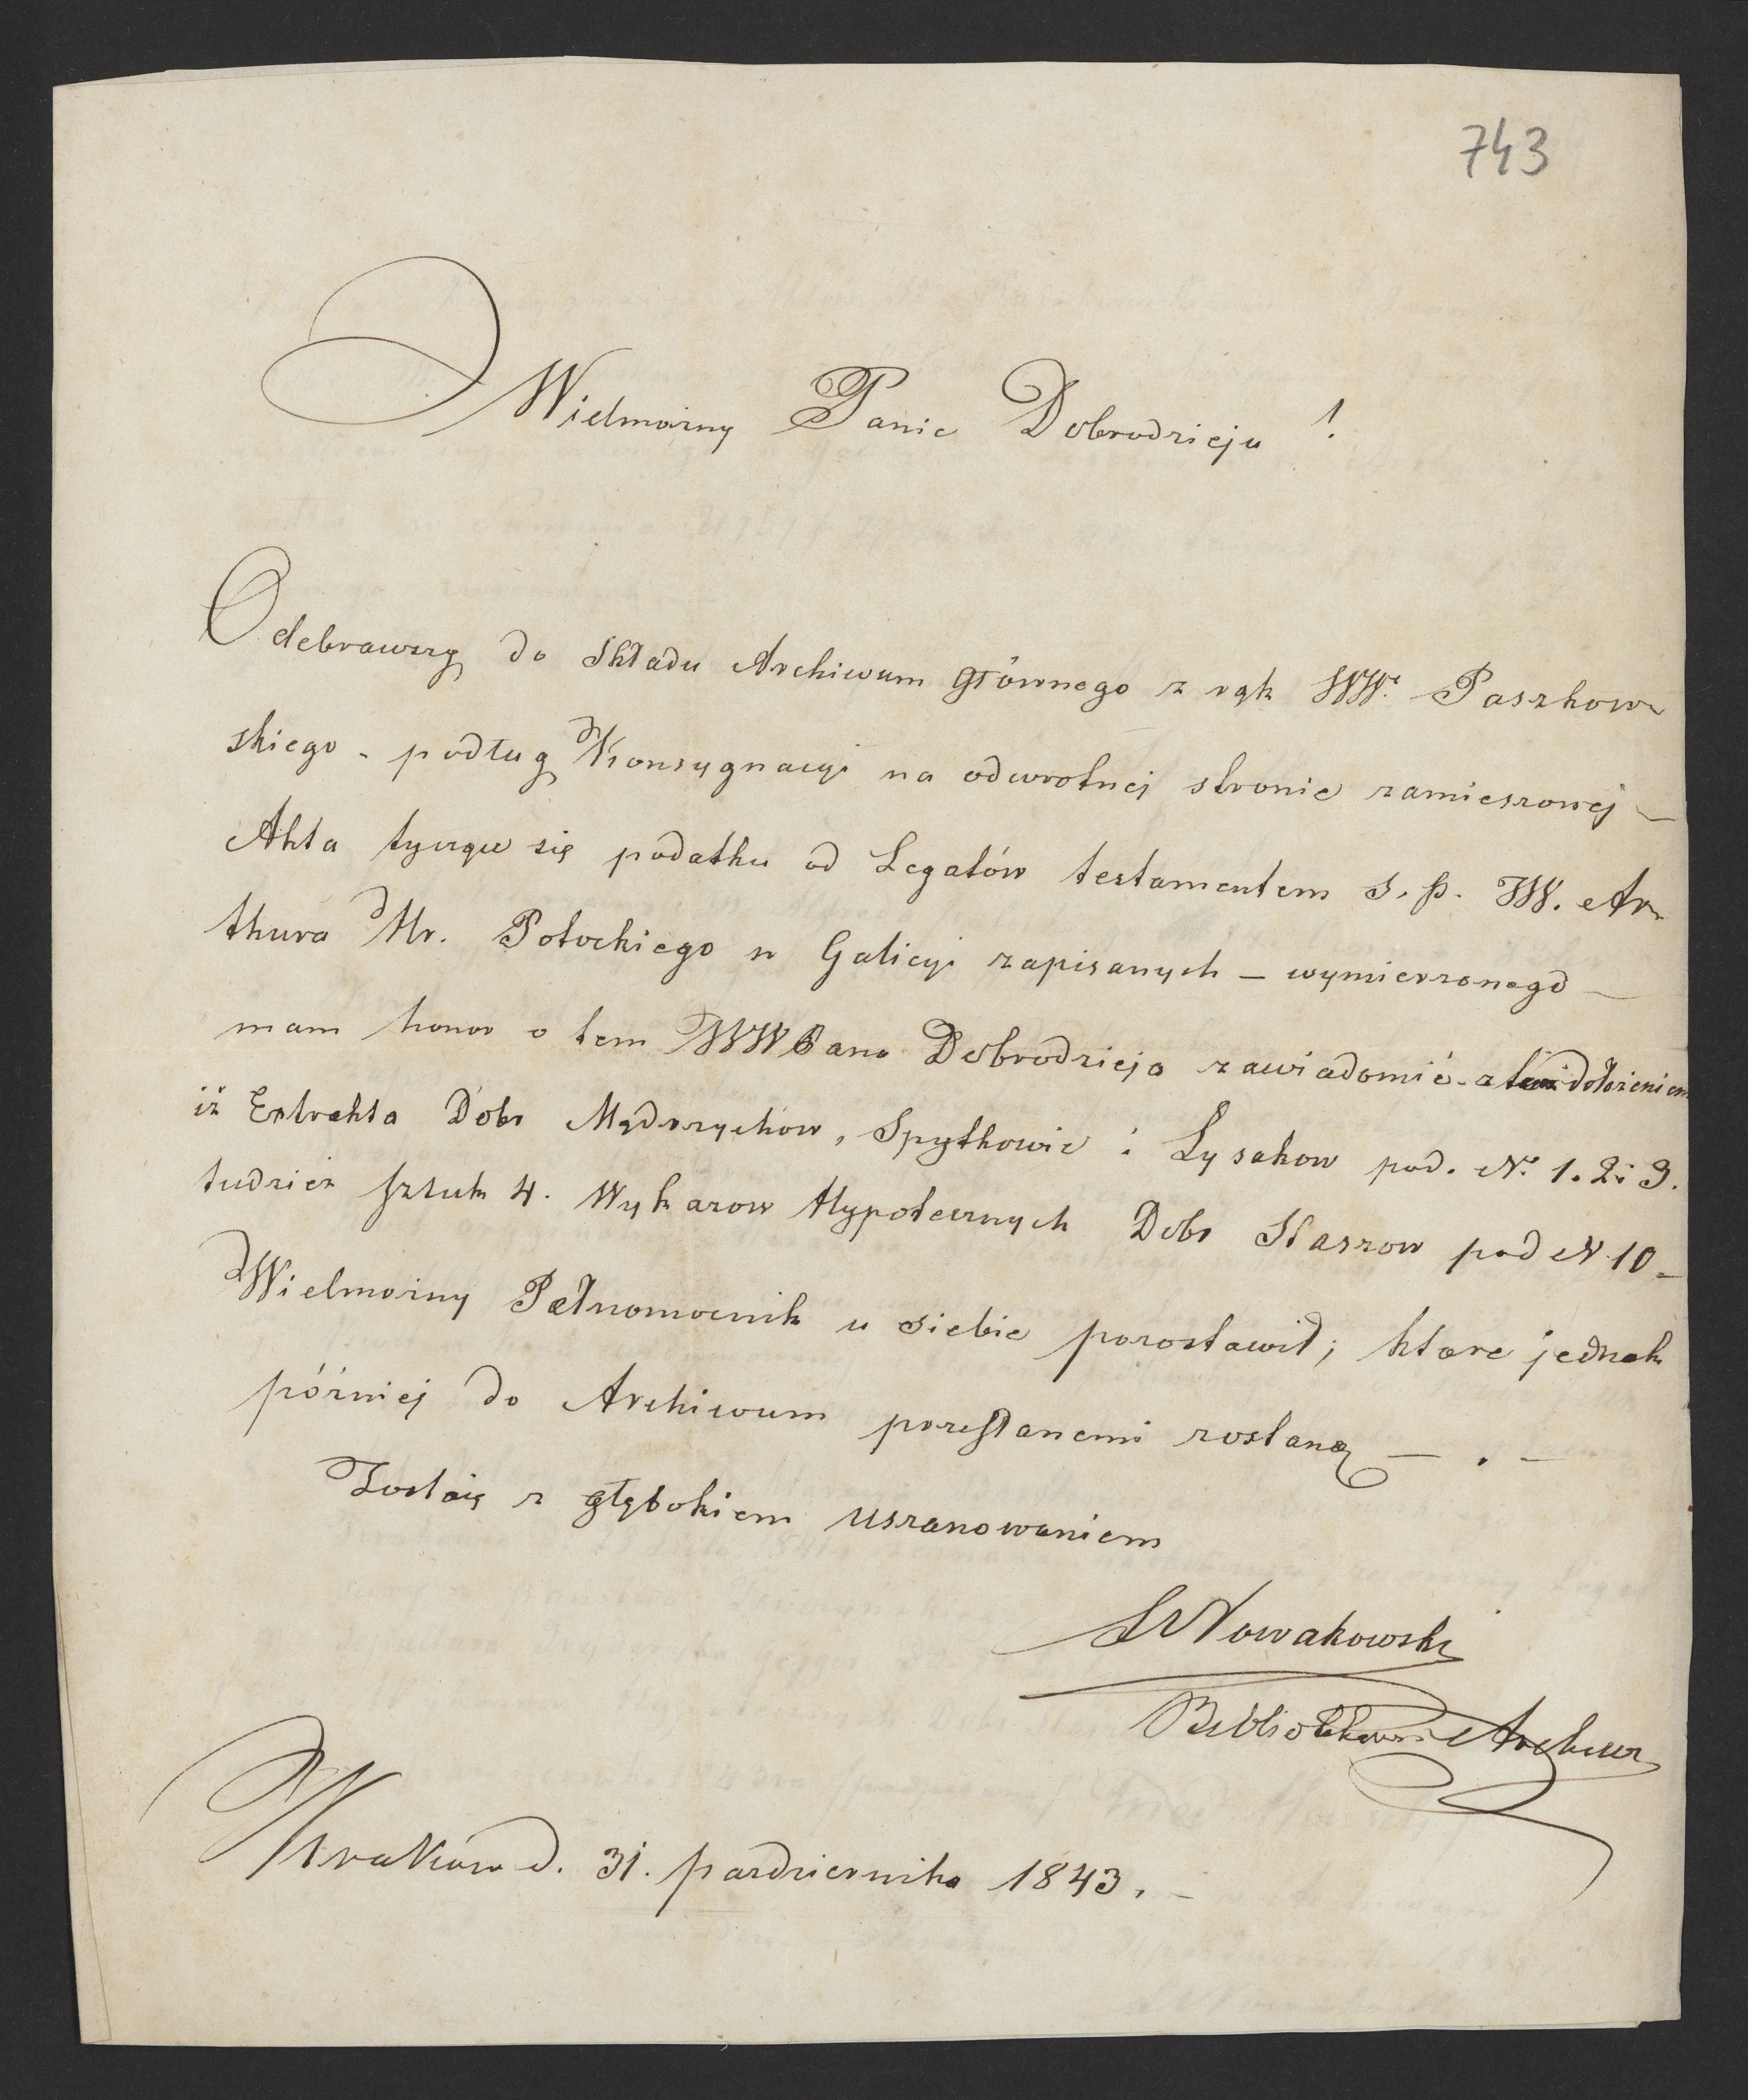 743
Wielmożny Panie Dobrodzieju !
Odebrawszy do Składu Archiwum Głównego z rąk WW. Paszkow
skiego - podług Konsygnacyi na odwrotnej stronie zamieszonej -
Akta tyczące się podatku od Legatów testamentem s. p. JW. Ar
thura Hr. Potockiego w Galicyi zapisanych - wymierzonego -
mam honor o tem WWPana Dobrodzieja zawiadomić - z dołożeniem
iż Extrakta Dobr Mądrzychow, Spytkowic i Lysakow pod. N. 1. 2 i 3.
tudzież sztuk 4. Wykazow Hypotecznych Dobr Staszow pod N 10 -
Wielmożny Pełnomocnik u siebie pozostawił; ktore jednak
później do Archiwum przesłanemi zostaną - . -
Zostaię z głębokiem uszanowaniem
Nowakowski
Kraków d. 31. pazdziernika 1843. -